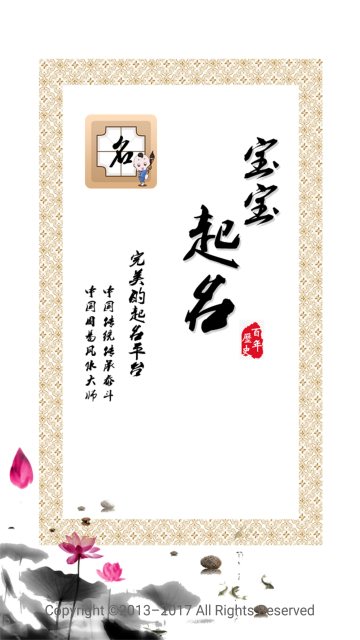 名
宝宝
起名
百年
歷史
完美的起名平台
中国传统传承泰斗
中国周易风水大师
Copyright ©2013-2017 All Rights Reserved